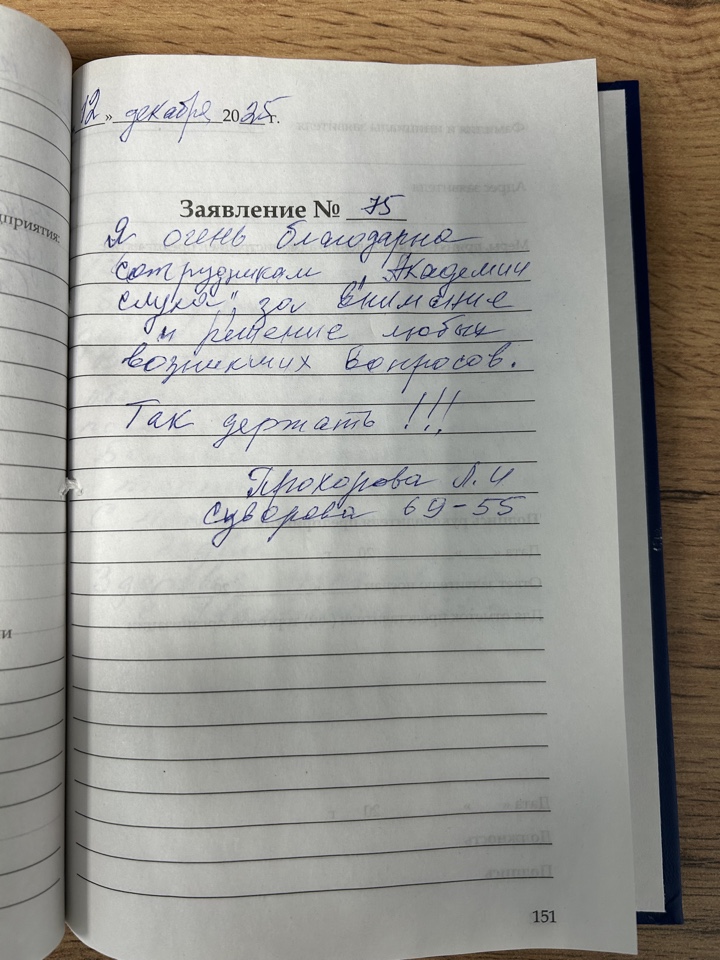 12 » декабря 2025 г.
Заявление № 75
приятия:
Я очень благодарна
сотрудникам "Академии
слуха" за внимание
и решение любых
возникших вопросов.
Так держать !!!
Прохорова Л.И
Суворова 69-55
и
151